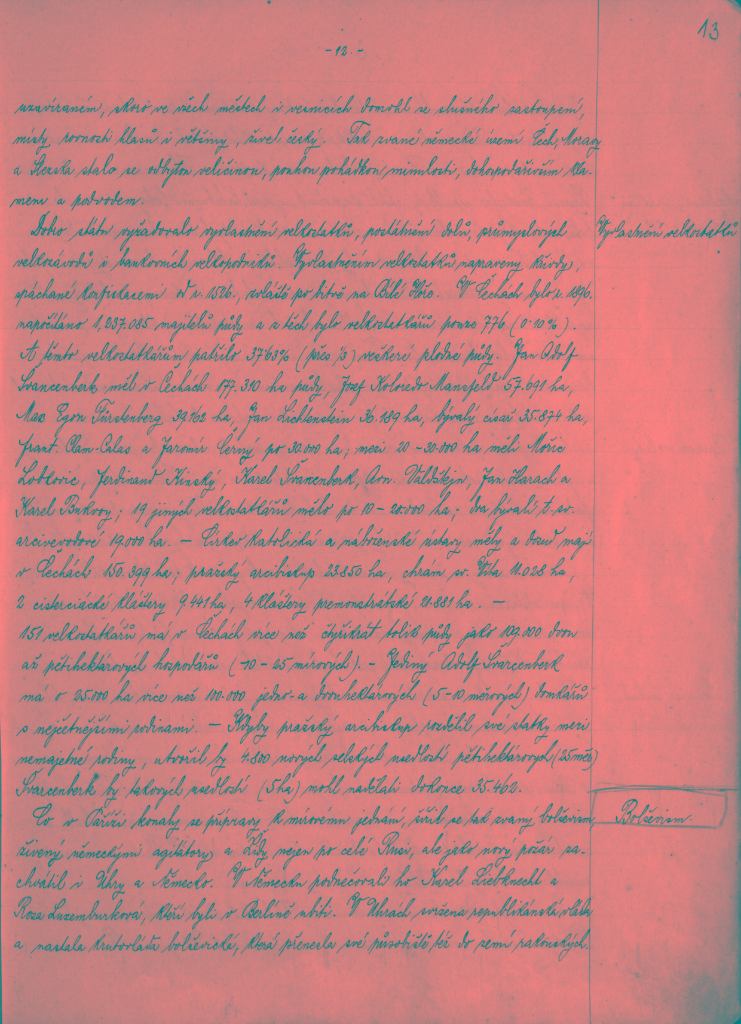 13
- 12. -
uzavíraném, skoro ve všech městech i vesnicích domohl se slušného zastoupení,
místy, rovnosti hlasů i většiny, živel český. Tak zvané německé území Čech, Moravy
a Slezska stalo se odbytou veličinou, pouhou pohádkou minulosti, dohospodařivším kla-
mem a podvodem.
Dobro státu vyžadovalo vyvlastnění velkostatků, postátnění dolů, průmyslových
Vyvlastnění velkostatků
velkozávodů i bankovních velkopodniků. Vyvlastněním velkostatků napraveny křivdy,
spáchané konfiskacemi od r. 1526., zvláště po bitvě na Bílé Hoře. V Čechách bylo r. 1896.
napočítáno 1,237.085 majitelů půdy a z těch bylo velkostatkářů pouze 776 (0·10%).
A těmto velkostatkářům patřilo 37·63% (přes 1/3) veškeré plodné půdy. Jan Adolf
Švarcenberk měl v Čechách 177.310 ha půdy, Josef Koloredo Mansfeld 57.691 ha,
Max Egon Fürstenberg 39.162 ha, Jan Lichtenstein 36.189 ha, bývalý císař 35.874 ha,
frant. Clam-Galas a Jaromír Černý po 30.000 ha; mezi 20 - 30.000 ha měli Mořic
Lobkovic, Ferdinand Kinský, Karel Švarcenberk, Arn. Valdštejn, Jan Harach a
Karel Bukvoy; 19 jiných velkostatkářů mělo po 10 - 20.000 ha; dva bývalí t. zv.
arcivevodové 19.000 ha. - Církev katolická a náboženské ústavy měly a dosud mají
v Čechách 150.399 ha; pražský arcibiskup 23.850 ha, chrám sv. Víta 11.028 ha,
2 cisterciácké kláštery 9.441 ha, 4 kláštery premonstrátské 21.881 ha. -
151 velkostatkářů má v Čechách více než čtyřikrát tolik půdy jako 109.100 dvou
až pětihektárových hospodářů (10 - 25 mírových). - Jediný Adolf Švarcenberk
má o 25.000 ha více než 100.000 jedno- a dvouhektarových (5-10 měrových) domkářů
s nejčetnějšími rodinami. - Kdyby pražský arcibiskup rozdělil své statky mezi
nemajetné rodiny, utvořil by 4.800 nových selských usedlostí pětihektárových (25 měr)
Švarcenberk by takových usedlostí (5 ha) mohl nadělati dokonce 35.462.
Co v Paříži konaly se přípravy k mírovému jednání, šířil se tak zvaný bolševism,
Bolševism.
živený německými agitátory a Židy nejen po celé Rusi, ale jako nový požár za-
chvátil i Uhry a Německo. V Německu podněcovali ho Karel Liebknecht a
Roza Luxemburková, kteří byli v Berlíně ubiti. V Uhrách svržena republikánská vláda
a nastala krutovláda bolševická, která přenesla své působiště též do zemí rakouských.